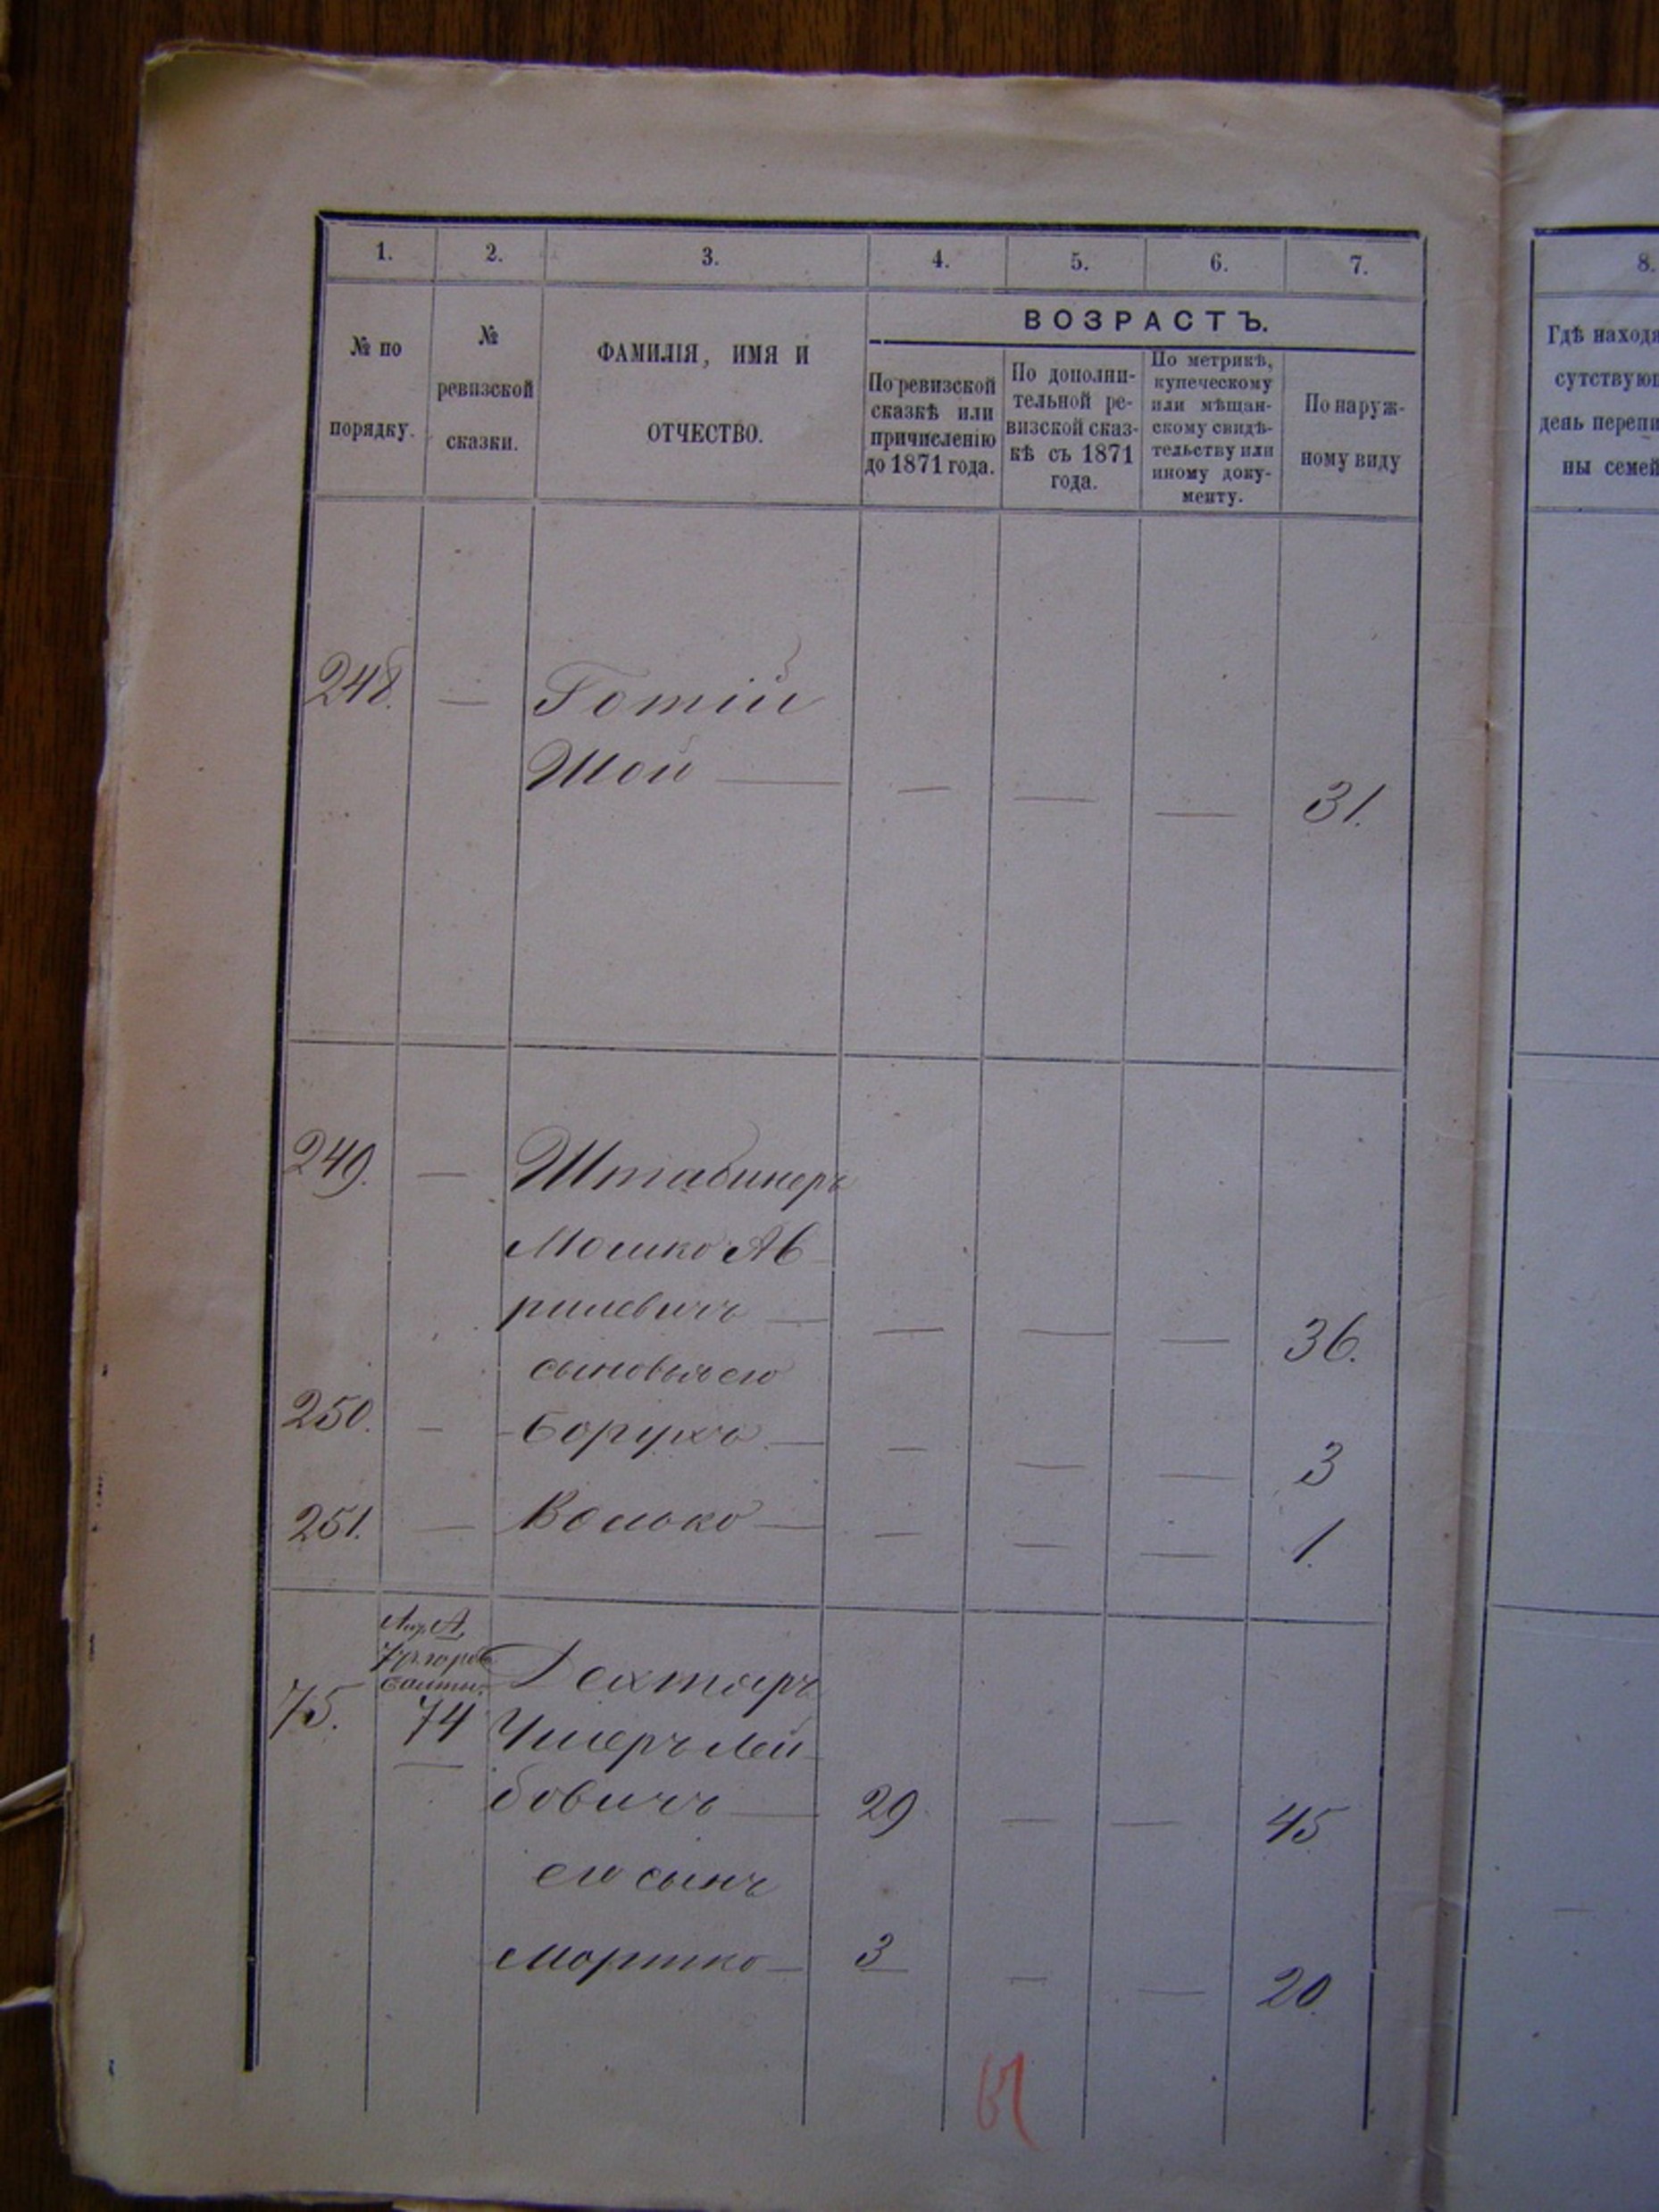 1. 2. 3. 4. 5. 6. 7.
№ по порядку.
№ ревизской сказки.
ФАМИЛІЯ, ИМЯ И ОТЧЕСТВО.
ВОЗРАСТЪ.
По ревизской сказкѣ или причисленію до 1871 года.
По дополни-
тельной ре-
визской сказ-
кѣ съ 1871
года.
По метрикѣ,
купеческому
или мѣщан-
скому свидѣ-
тельству или
иному доку-
менту.
По наруж-
ному виду
248. — Готій
Шой — — — — 31.
249. — Штабинеръ
Мошко Ав-
рилевичъ — — — — 36.
сыновья его
250. — Борухъ — — — — 3
251. — Волько — — — — 1.
75. 74 Дехтяръ
Умеръ Лей-
бовичъ — 29 — — 45
его сынъ
Мортко — 3 — — 20.
8.
Гдѣ находя
сутствующ
день перепи
ны семей